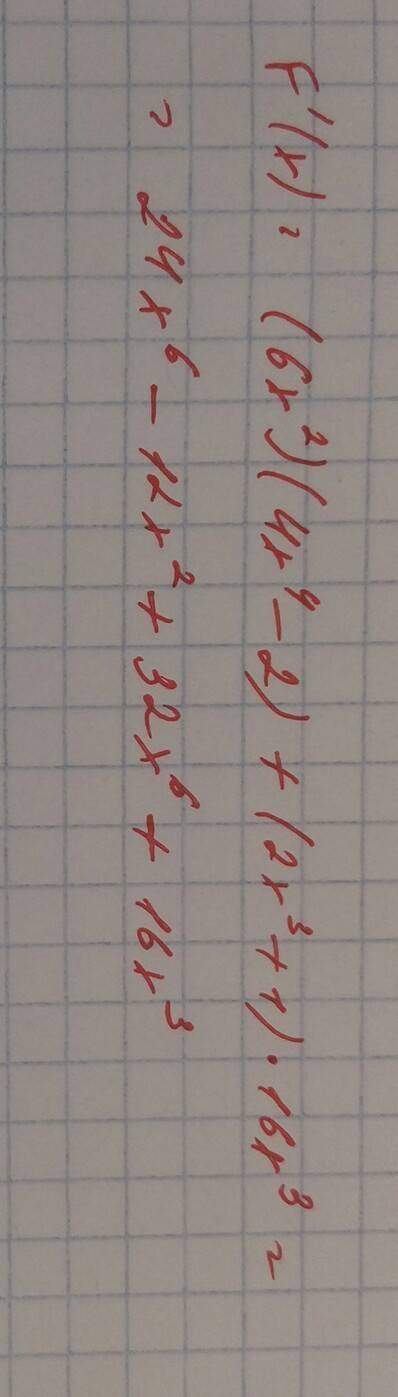 F'(x) = (6x²)(4x⁴ - 2) + (2x³ + 1) · 16x³ =
= 24x⁶ - 12x² + 32x⁶ + 16x³